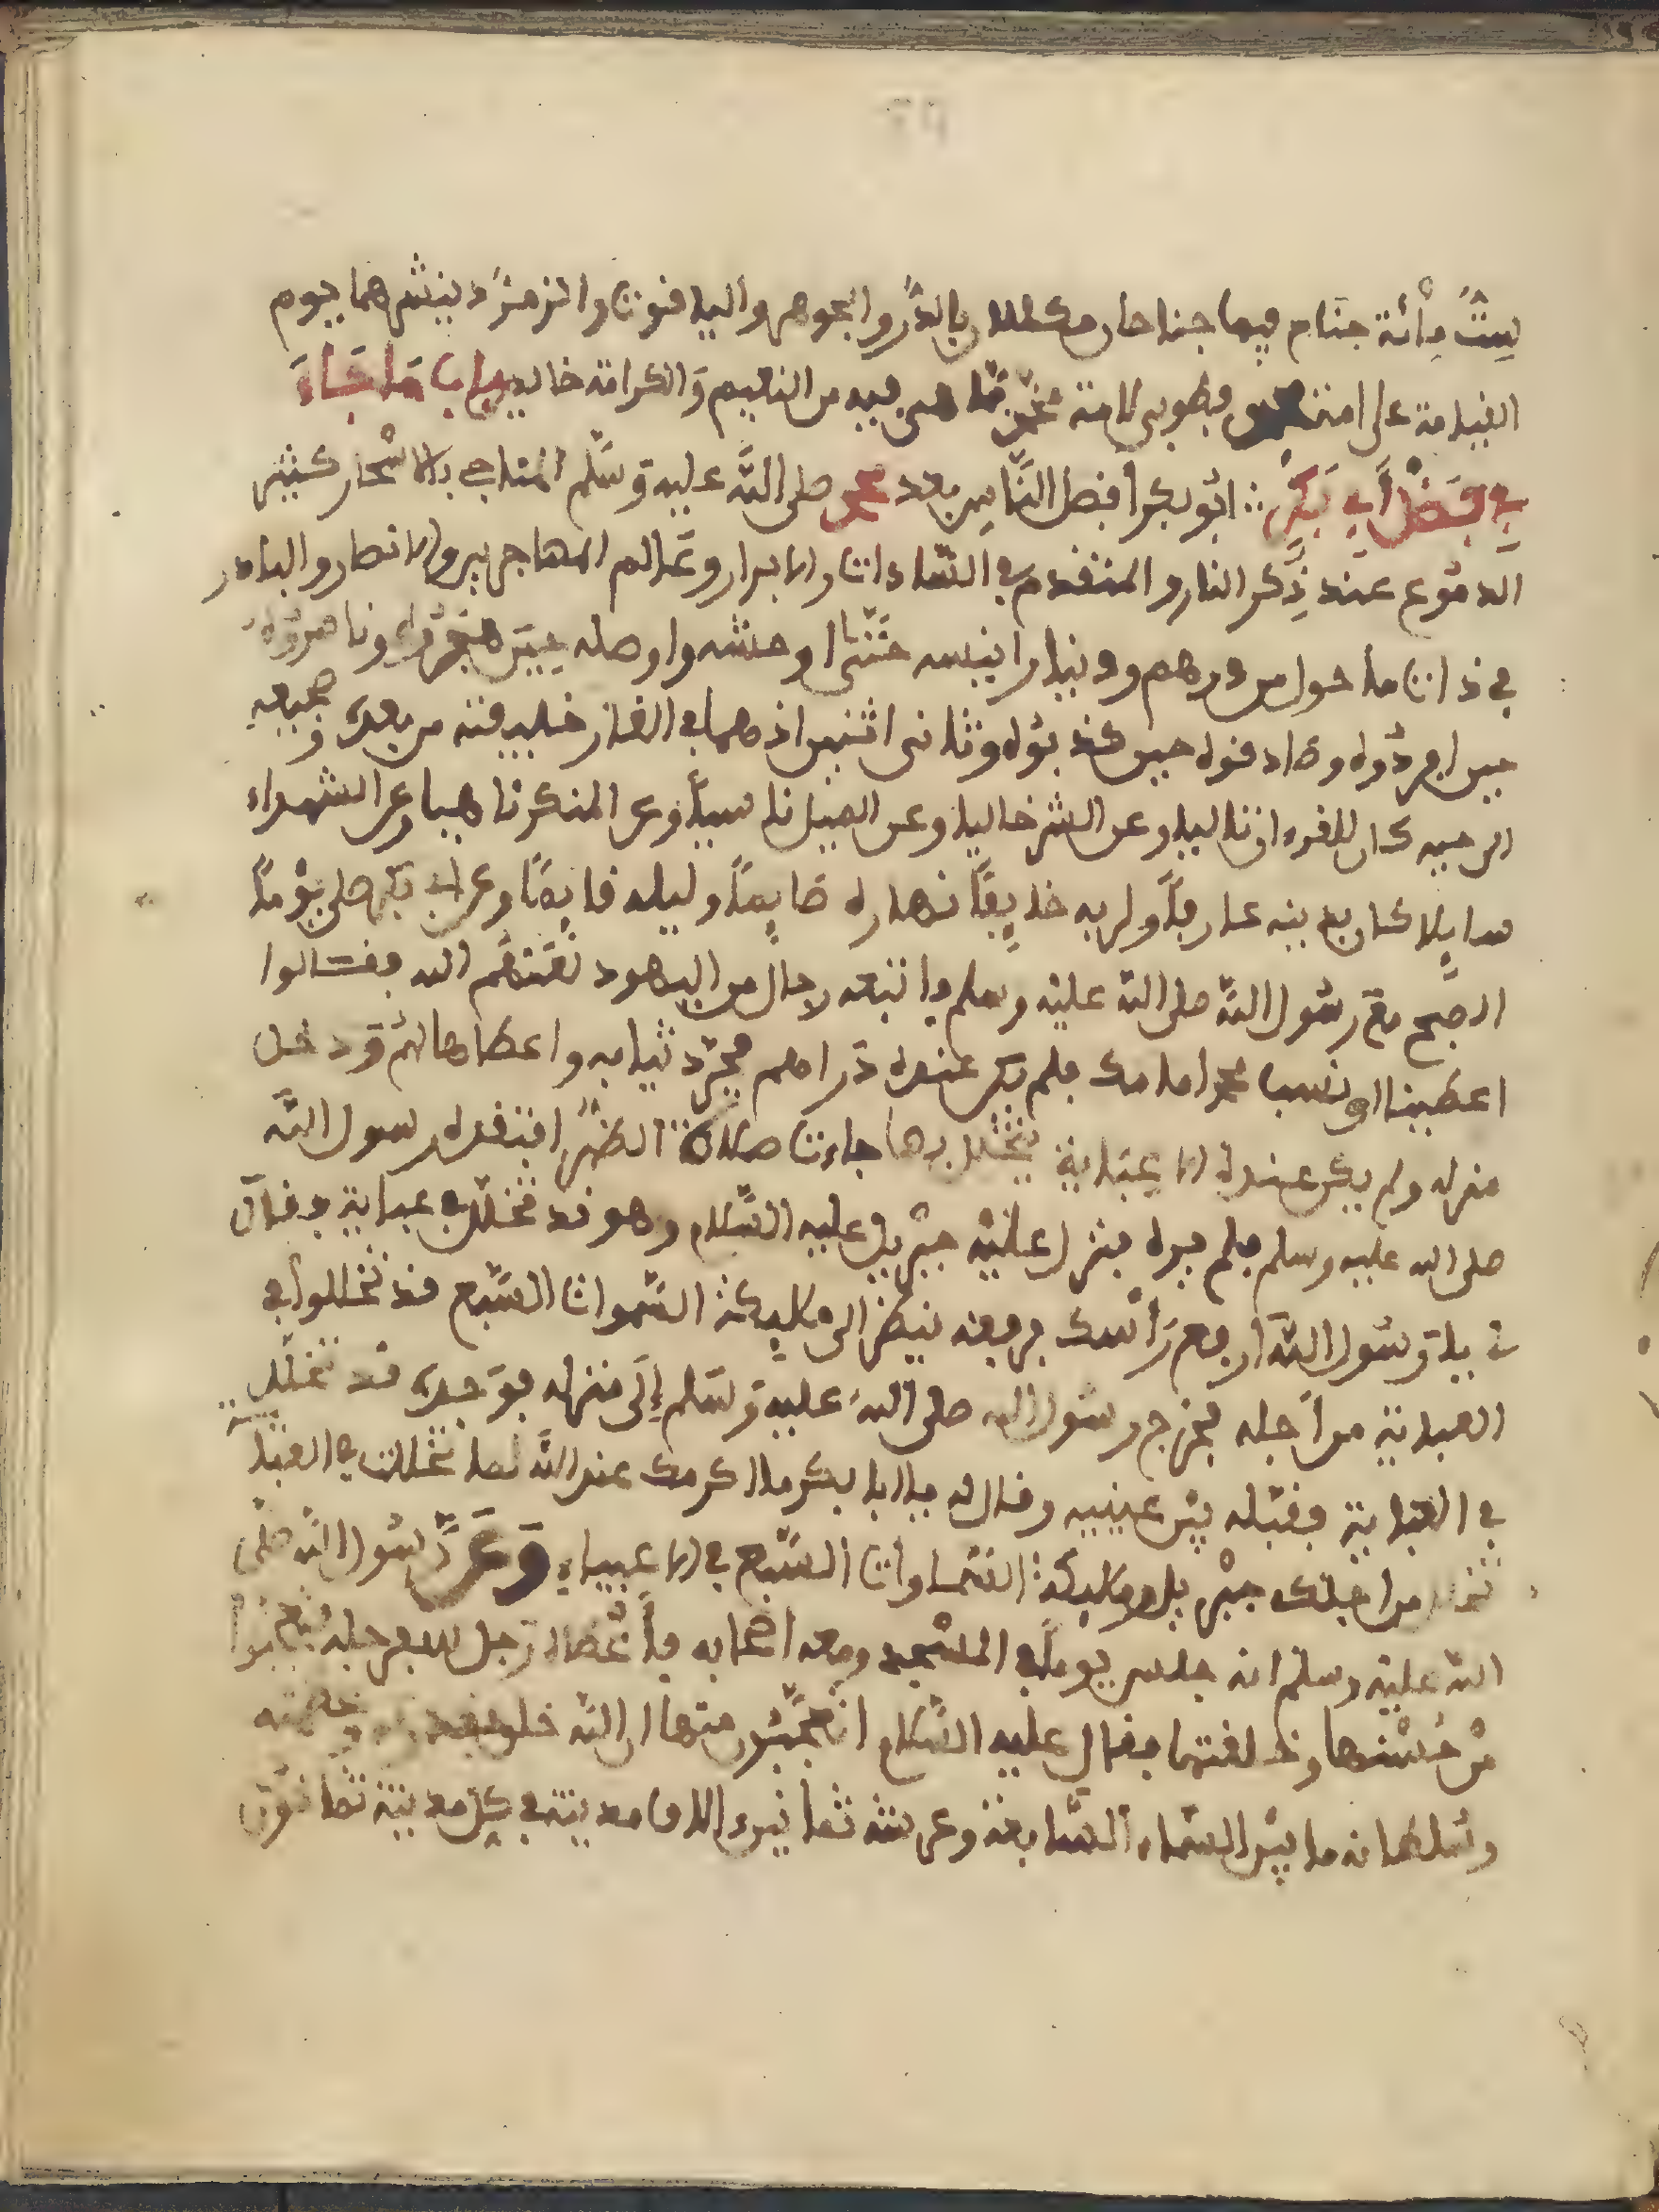 سِتُّ مِأئة جنام فيها جناحان مكللان بالدُّر والجوهر والياقوت والزمرُّد ينشرهما يوم
القيامة على امة محمد فطوبى لامة محمّد ممّا هى فيه من النعيم وَالكرامة خالدين باب مَا جَاءَ
فِي فَضْل أبِي بَكرٍ ∴ ابُو بكر أفضل النَّاس بعد محمد صلى اللَّه عليه وَسَلّم المناجى بالاسْحار كثير
الدمُوع عند ذِكر النار والمتقدم في السَّادات والابرار وعَالم المهاجرين والانصار والباذر
في ذات ما حول من درهم ودينار انيسه حَتّى اوحشوا وصله حِينَ هجَرُوه وناصروه
حين افردُوه وصادقوه حين كذبوُه وثانى اثنين اذ هما في الغار خليفته من بعده وضجيعه
الى جنبه كان للقرءان تاليا وعن الشر خاليا وعن الميل ناسيًا وعن المنكر ناهيا وعن الشهداء
سايِلا كان بدينه عارفًا ولربه خايفًا نهاره صَايِمًا وليله قايِمًا وعن ابي بكر صلى يوْمًا
الصُّبح معَ رسُول اللَّه صلى اللَّه عليْه وسلم فاتبعه رجالٌ من اليهود لعَنَهُم الله فقالوا
اعطينا او نسب محمدا امامك فلم يكن عنده دَراهم فجرّد ثيابه واعطاها لهُم وَدخل
منزله ولم يكن عنده الا عبَاية يتخلل بها جاءت صلاة الظهْر افتقده رسول اللَّه
صلى الله عليه وسلم فلم يره فنزل عليْه جبْريل عليه السّلام وهو قد تخلّل في عباية وقال
له يا رَسُول اللَّه ارفع رَأسك فرفعه ينظر الى ملايِكة السّموات السَّبع قد تخللوا في
العباية من أجله فخرج رسُول الله صلى اللهُ عليه وَسَلم إلَى منزله فوَجده قد تخلّل
في العَباية فقبّله بيْن عينيه وقال له يا ابا بكر ما اكرمك عند اللَّه لما تخللت في العباية
تخلل من اجلك جبْريل وملايكة السَّماوات السَّبع في الاعبياءِ وَعَن رَّسُول اللَّه صلى
اللَّه عليْه وسلّم انه جلس يومًا في المسْجد ومعه اصحابه فأعْطاه رَجل سفرجلة فتعجّبوا
مِنْ حُسْنها وخلقتها فقال عليه السّلام اتعجَّبُون منها ان اللَّه خلق
وسُلطانه ما بيْن السّماء السَّابعة وعرشه ثمانين الف مدينة في كل مدينة ثمانون